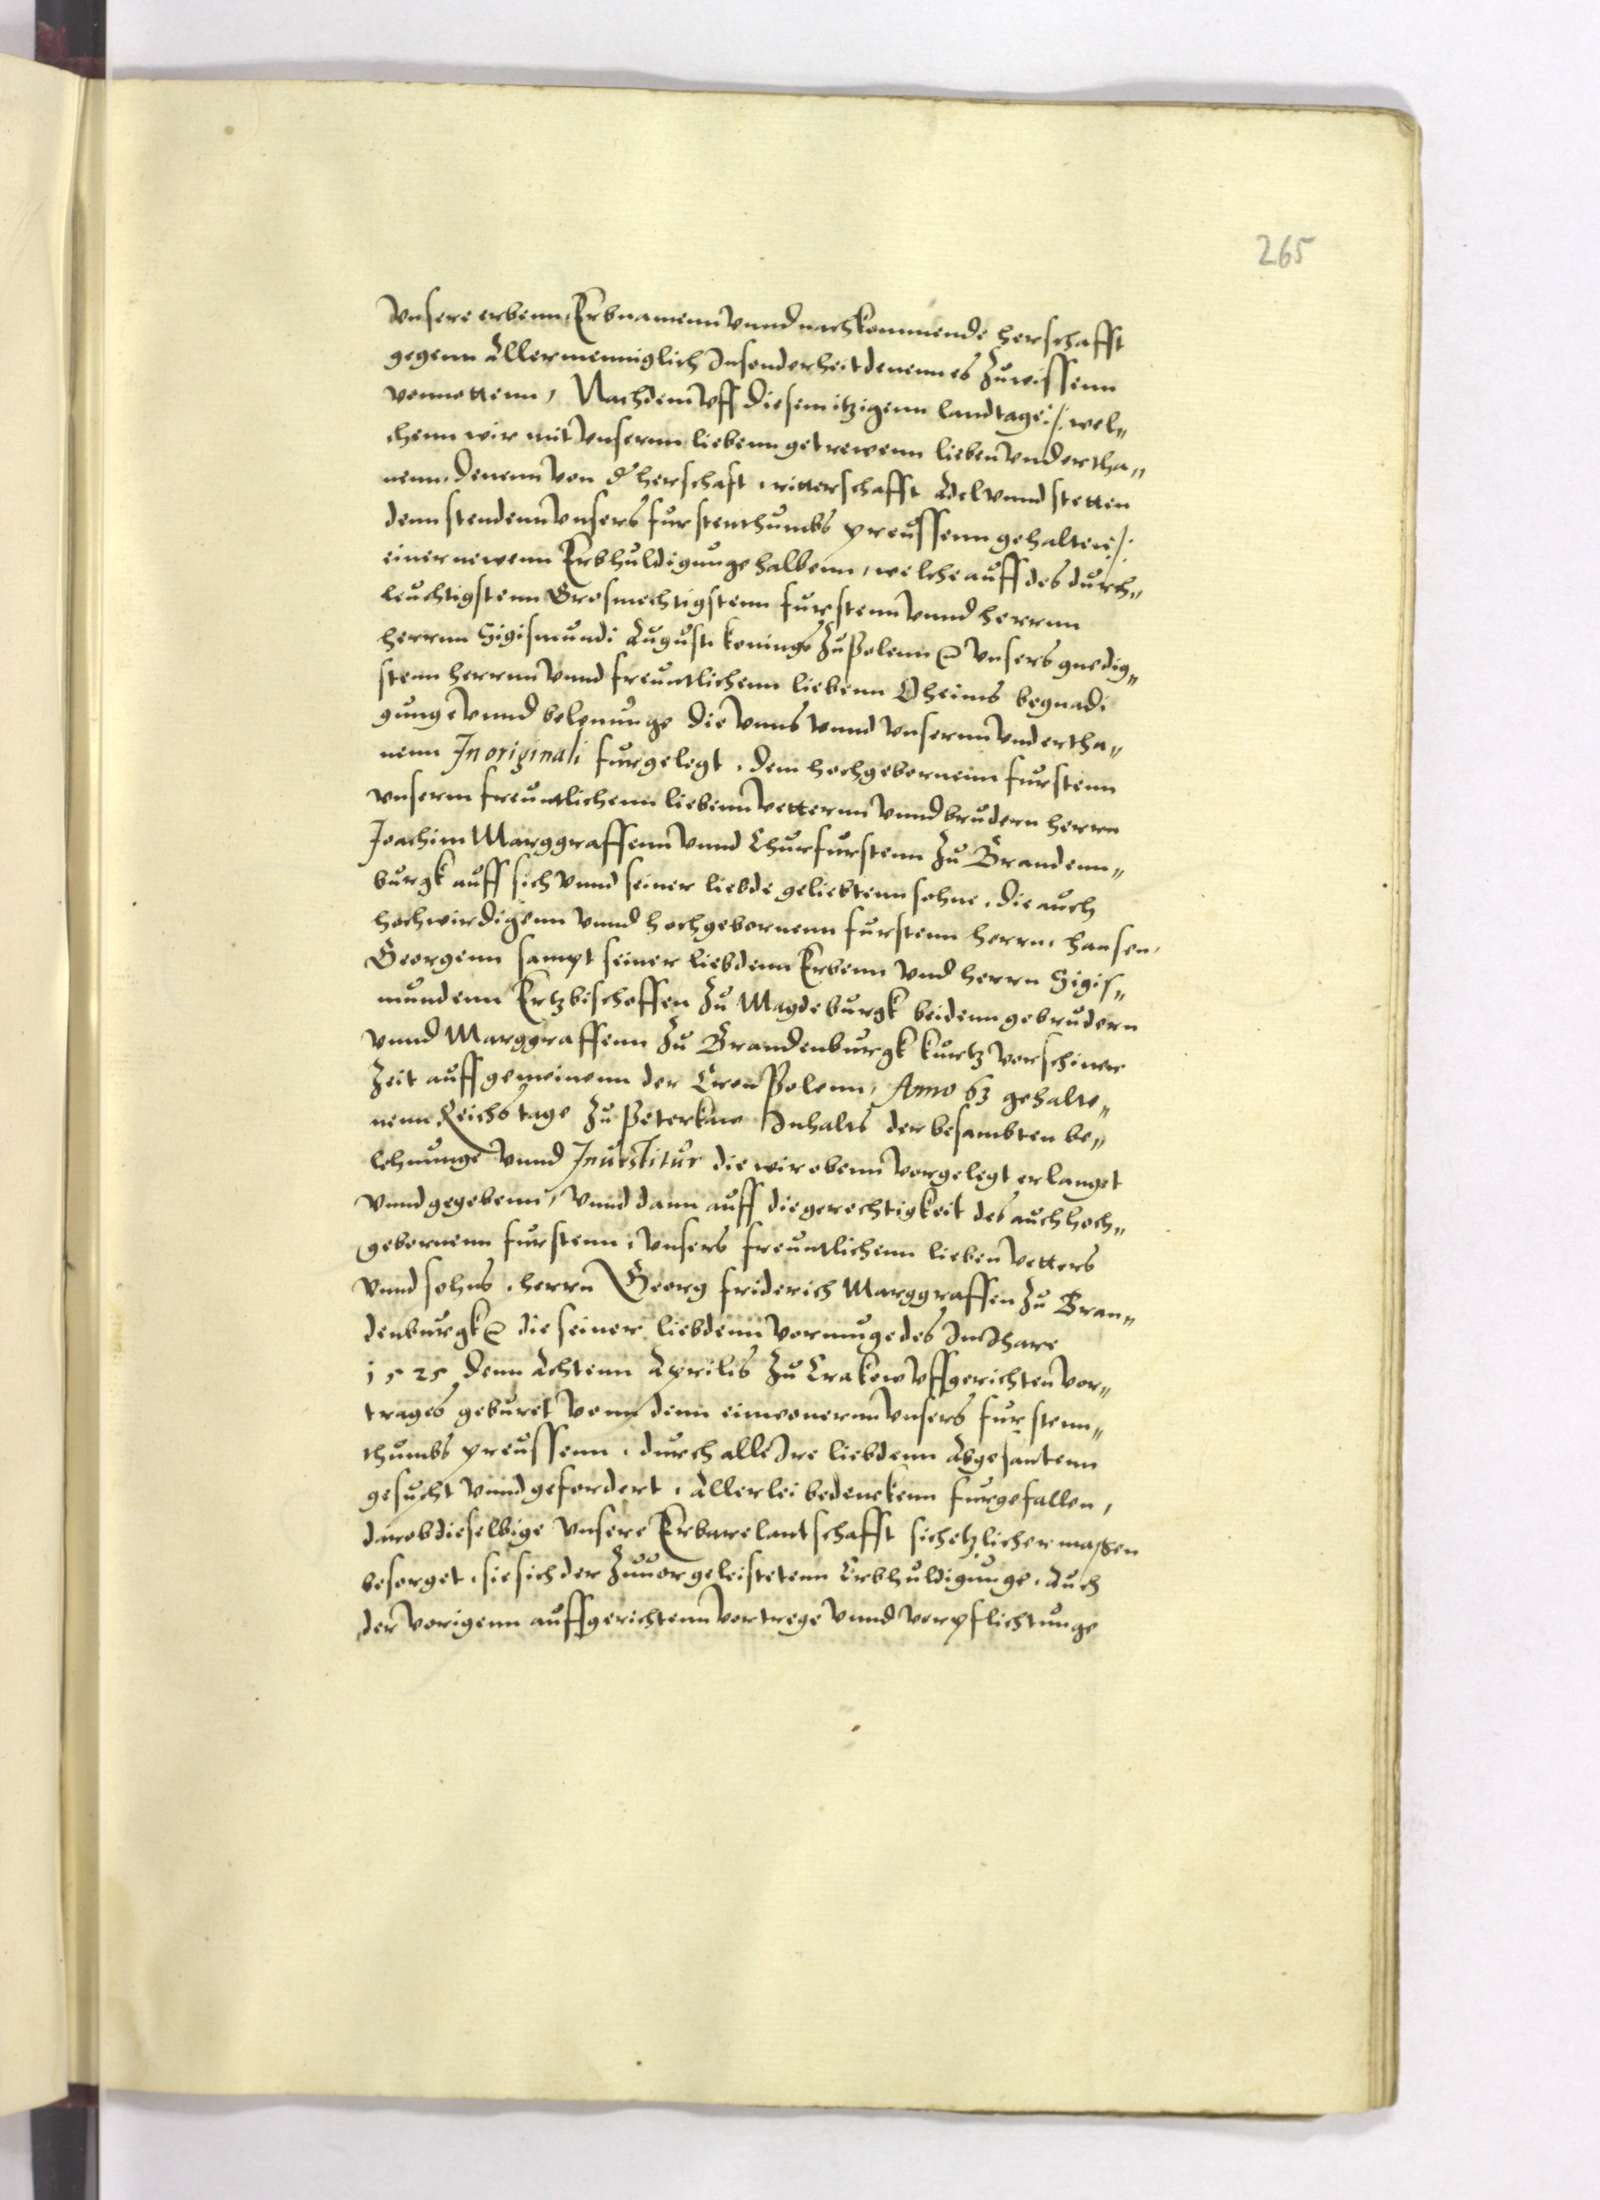 265
Unsere erbenn Erbnamenn vnnd nachkommende herschafft
gegenn Allermenniglich Insonderheit denenn es Zuwissenn
vonnottenn, Nachdem vff diesem itzigenn landtage :/: wel„
chenn wir mit Vnsernn liebenn getrewenn lieben Vndertha„
nenn, denenn von der herschaft, ritterschafft Adel vnnd stetten
denn stendenn Vnsers furstenthumbs preussenn gehalten :/:
einer newenn Erbhuldigunge halbenn, welche auff des durch„
leuchtigstenn Grosmechtigstenn furstenn vnnd herrnn
herrnn Sigismundi Augusti konings Zu Polenn etc Vnsers gnedig„
stenn herrnn Vnnd freuntlichenn liebenn Oheims begnadi
gunge Vnnd belenunge die Vnns vnnd Vnsernn Vndertha„
nenn In originali furgelegt, dem hochgebornenn furstenn
Vnserm freuntlichenn liebenn Vetternn Vnnd brudern herrn
Joachim Marggraffenn Vnnd Churfurstenn Zu Brandenn„
burgk auff sich Vnnd seiner liebde geliebtenn sohne, die auch
hochwirdigenn vnnd hochgebornenn furstenn herrnn hansen,
Georgenn sampt seiner liebdenn Erbenn vnd herrn Sigis„
mundenn Ertzbischoffen Zu Magdeburgk beidenn gebrudern
Vnnd Marggraffenn Zu Brandenburgk kurtz vorschiner
Zeit auff gemeinenn der Cron Polenn, Anno 63 gehalte„
nenn Reichstage Zu Peterkaw Inhalts der besambten be„
lehnunge Vnnd Inuestitur die wir obenn Vorgelegt erlanget
Vnnd gegebenn, Vnnd dann auff die gerechtigkeit des auch hoch„
gebornenn furstenn, Vnsers freuntlichenn lieben Vetters
Vnnd sohns, herrn Georg friderich Marggraffen Zu Bran„
denburgk etc die seiner liebdenn vormuge des Im Jhare
1525 denn Achtenn Aprilis Zu Crakow vffgerichten Vor„
trages geburet vonn denn einwonernn Vnsers furstenn„
thumbs preussenn, durch alle Ire liebdenn Abgesantenn
gesucht vnnd gefordert, Allerlei bedenckenn furgefallen,
darob dieselbige Vnsere Erbare lantschafft sich etzlicher massen
besorget, sie sich der Zuuor geleistetenn Erbhuldigunge, Auch
der Vorigenn auffgerichtenn Vortrege Vnnd Verpflichtunge